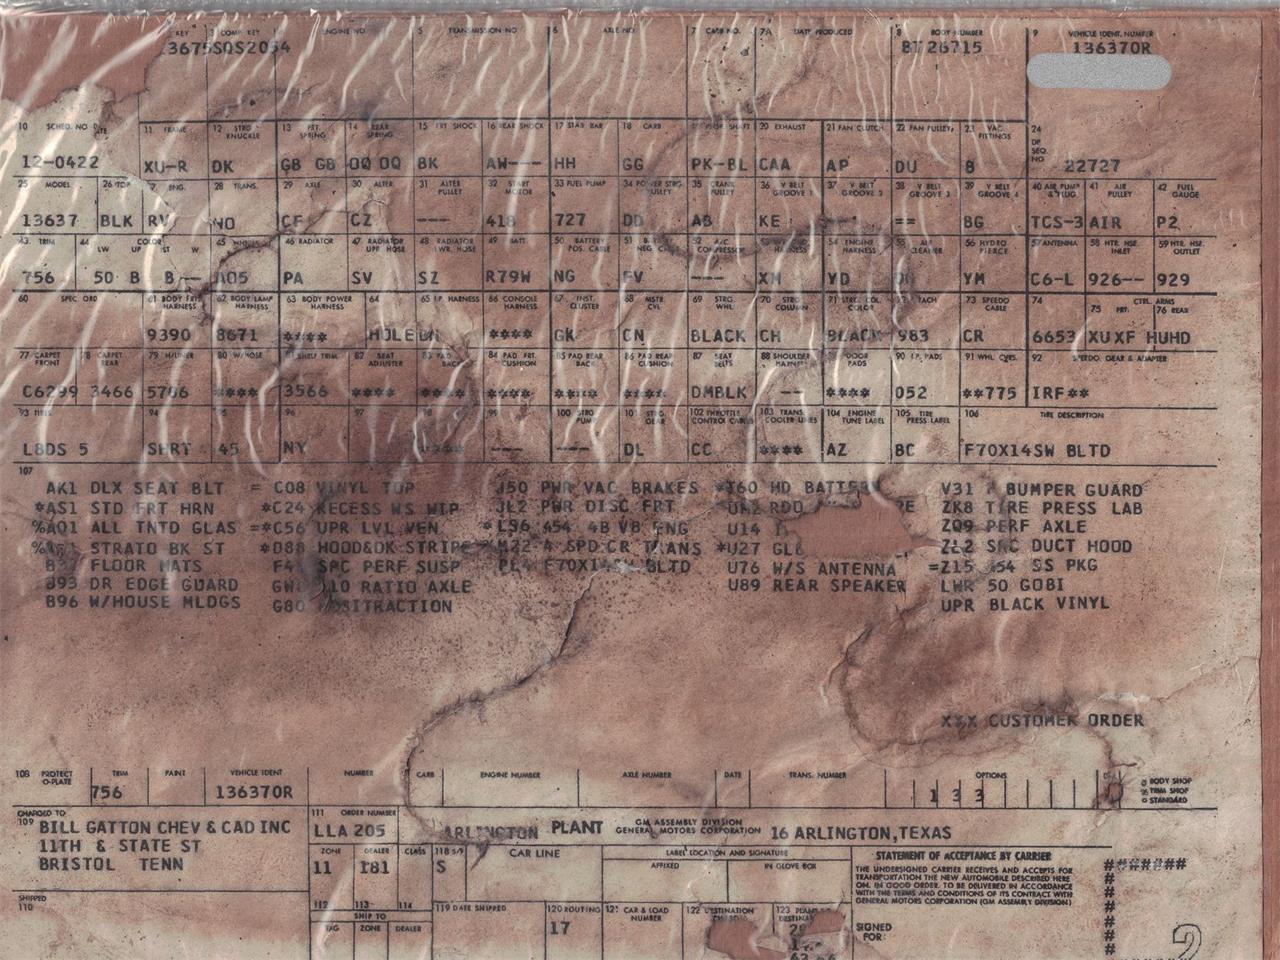 KEY 3 COMP KEY ENGINE NO 5 TRANSMISSION NO 6 AXLE NO 7 CARB NO. 7A DATE PRODUCED 8 BODY NUMBER 9 VEHICLE IDENT. NUMBER
3675SQS2054 BT 26715 136370R
10 SCHED. NO 11 FRAME 12 STRG KNUCKLE 13 FRT. SPRING 14 REAR SPRING 15 FRT SHOCK 16 REAR SHOCK 17 STAB BAR 18 CARB PROP SHAFT 20 EXHAUST 21 FAN CLUTCH 22 FAN PULLEY 23 VAC. FITTINGS 24 DF SEQ. NO
12-0422 XU-R DK GB GB OO OO BK AW--- HH GG PK-BL CAA AP DU B 22727
25 MODEL 26 TOP ENG. 28 TRANS. 29 AXLE 30 ALTER 31 ALTER PULLEY 32 START MOTOR 33 FUEL PUMP 34 POWER STRG PULLEY 35 CRANK PULLEY 36 V BELT GROOVE 1 37 V BELT GROOVE 2 38 V BELT GROOVE 3 39 V BELT GROOVE 4 40 AIR PUMP & PLUG 41 AIR PULLEY 42 FUEL GAUGE
13637 BLK RV NO CF CZ --- 418 727 DD AB KE == BG TCS-3 AIR P2
43 TRIM 44 COLOR LW UP ST W 45 46 RADIATOR 47 RADIATOR UPP HOSE 48 RADIATOR LWR. HOSE 49 BATT 50 BATTERY POS. CABLE 51 NEG. 52 A/C COMPRESSOR 54 ENGINE HARNESS AIR CLEANER 56 HYDRO PIERCE 57 ANTENNA 58 HTR. HSE. INLET 59 HTR. HSE. OUTLET
756 50 B B-- A05 PA SV SZ R79W NG FV ---- XM YD YM C6-L 926-- 929
60 SPEC ORD 61 BODY FRT HARNESS 62 BODY LAMP HARNESS 63 BODY POWER HARNESS 64 65 I.P. HARNESS 66 CONSOLE HARNESS 67 INST. CLUSTER 68 MSTR. CYL 69 STRG. WHL 70 STRG COLUMN 71 STRG. COL. COLOR TACH 73 SPEEDO CABLE 74 CTRL. ARMS 75 FRT. 76 REAR
9390 8671 **** HOLE **** GK CN BLACK CH BLACK 983 CR 6653 XUXF HUHD
77 CARPET FRONT 78 CARPET REAR 79 H/LINER 80 W/HOSE SHELF TRIM 82 SEAT ADJUSTER 83 PAD BACK 84 PAD FRT. CUSHION 85 PAD REAR BACK 86 PAD REAR CUSHION 87 SEAT BELTS 88 SHOULDER HARNESS DOOR PADS 90 I.P. PADS 91 WHL CVRS. 92 SPEEDO. GEAR & ADAPTER
C6299 3466 5706 **** 3566 **** **** **** **** **** DMBLK -- **** 052 **775 IRF**
93 TIRES 94 95 96 97 98 99 100 STRG PUMP 101 STRG GEAR 102 THROTTLE CONTROL CABLE 103 TRANS. COOLER LINES 104 ENGINE TUNE LABEL 105 TIRE PRESS LABEL 106 TIRE DESCRIPTION
L8DS 5 SHRT 45 NY --- --- DL CC **** AZ BC F70X14SW BLTD
107
AK1 DLX SEAT BLT = C08 VINYL TOP J50 PWR VAC BRAKES *T60 HD BATTERY V31 F BUMPER GUARD
*AS1 STD FRT HRN *C24 RECESS WS WIP JL2 PWR DISC FRT RDO ZK8 TIRE PRESS LAB
%AQ1 ALL TNTD GLAS =*C56 UPR LVL VEN *LS6 454 4B V8 ENG U14 ZQ9 PERF AXLE
STRATO BK ST *D88 HOOD&DK STRIPE *M22 4 SPD CR TRANS *U27 ZL2 SPC DUCT HOOD
B37 FLOOR MATS F41 SPC PERF SUSP PL4 F70X14 BLTD U76 W/S ANTENNA =Z15 454 SS PKG
B93 DR EDGE GUARD 410 RATIO AXLE U89 REAR SPEAKER LWR 50 GOBI
B96 W/HOUSE MLDGS G80 POSITRACTION UPR BLACK VINYL
XXX CUSTOMER ORDER
108 PROTECT O-PLATE TRIM PAINT VEHICLE IDENT NUMBER CARB ENGINE NUMBER AXLE NUMBER DATE TRANS. NUMBER OPTIONS BODY SHOP
TRIM SHOP
STANDARD
756 136370R 1 3 3
CHARGED TO
109 BILL GATTON CHEV & CAD INC
11TH & STATE ST
BRISTOL TENN
111 ORDER NUMBER
LLA 205 ARLINGTON PLANT GM ASSEMBLY DIVISION GENERAL MOTORS CORPORATION 16 ARLINGTON,TEXAS
ZONE DEALER CLASS 118 S/9 CAR LINE LABEL LOCATION AND SIGNATURE
AFFIXED IN GLOVE BOX
11 181 S
STATEMENT OF ACCEPTANCE BY CARRIER
THE UNDERSIGNED CARRIER RECEIVES AND ACCEPTS FOR
TRANSPORTATION THE NEW AUTOMOBILE DESCRIBED HERE
ON, IN GOOD ORDER, TO BE DELIVERED IN ACCORDANCE
WITH THE TERMS AND CONDITIONS OF ITS CONTRACT WITH
GENERAL MOTORS CORPORATION (GM ASSEMBLY DIVISION)
#######
SHIPPED
110
112 113 114 119 DATE SHIPPED 120 ROUTING 121 CAR & LOAD NUMBER 122 DESTINATION 123
SHIP TO
TAG ZONE DEALER
17
SIGNED
FOR:
2